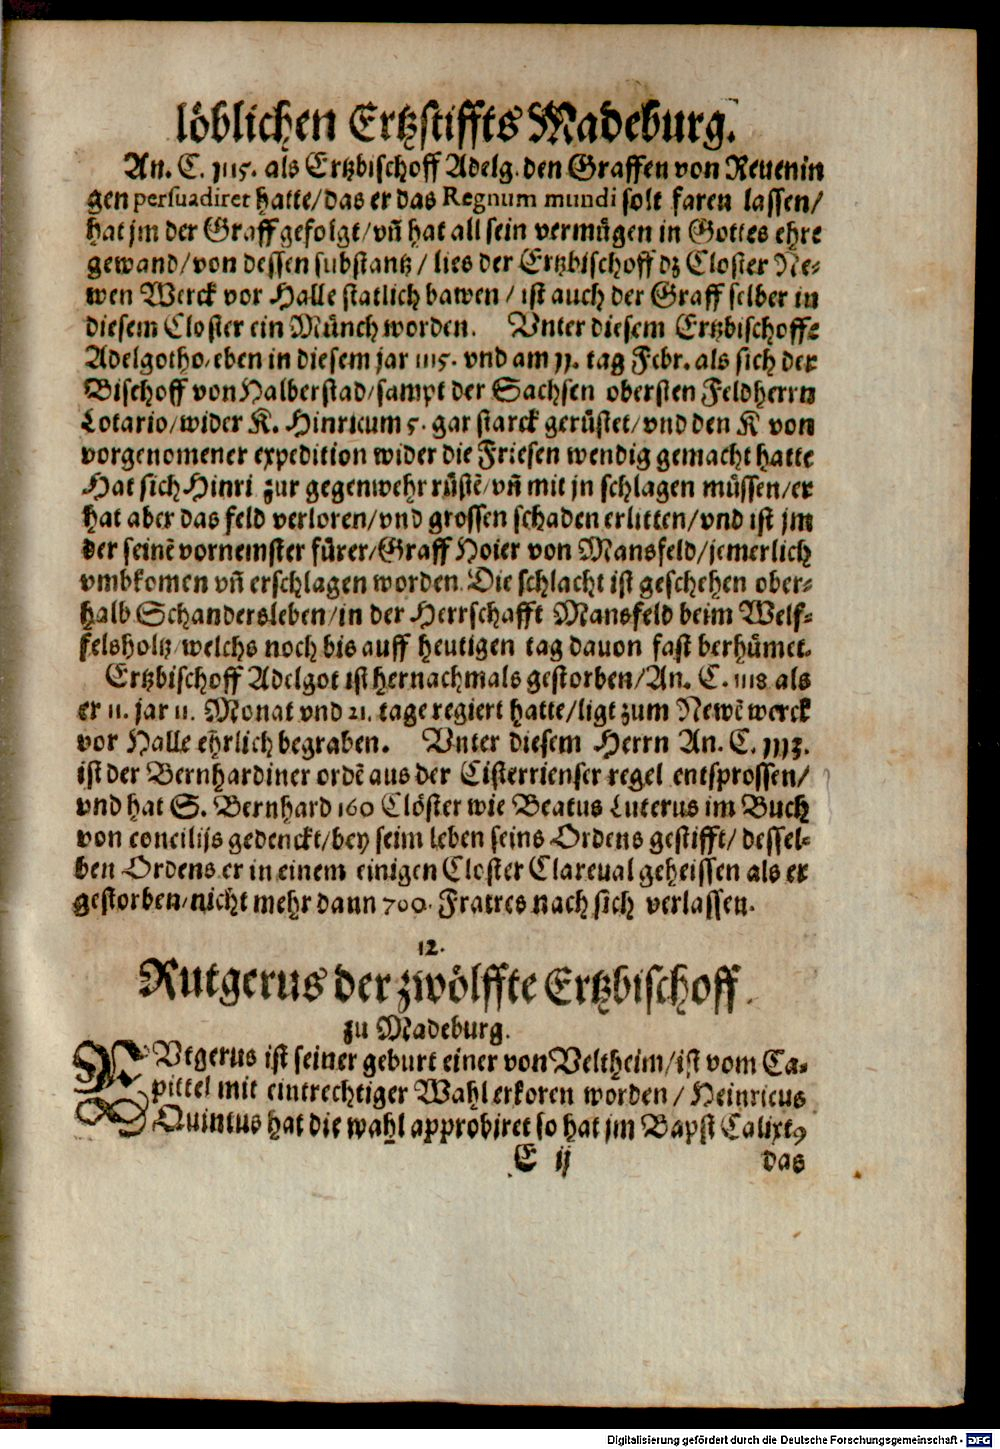 löblichen Ertzstiffts Madeburg.
An. C. 1115. als Ertzbischoff Adelg. den Graffen von Reuenin
gen persuadiret hatte/das er das Regnum mundi solt faren lassen/
hat jm der Graff gefolgt/vñ hat all sein vermügen in Gottes ehre
gewand/von dessen substantz/ lies der Ertzbischoff dz Closter Ne-
wen Werck vor Halle statlich bawen/ ist auch der Graff selber in
diesem Closter ein Münch worden. Vnter diesem Ertzbischoffe
Adelgotho/eben in diesem jar 1115. vnd am 11. tag Febr. als sich der
Bischoff von Halberstad/sampt der Sachsen obersten Feldherrn
Lotario/wider K. Hinricum 5. gar starck gerüstet/vnd den K von
vorgenomener expedition wider die Friesen wendig gemacht hatte
Hat sich Hinri zur gegenwehr rüstē/vñ mit jn schlagen müssen/er
hat aber das feld verloren/vnd grossen schaden erlitten/vnd ist jm
der seinē vornemster fürer/Graff Hoier von Mansfeld/jemerlich
vmbkomen vñ erschlagen worden. Die schlacht ist geschehen ober-
halb Schandersleben/in der Herrschafft Mansfeld beim Welf-
felsholtz/welchs noch bis auff heutigen tag dauon fast berhümet.
Ertzbischoff Adelgot ist hernachmals gestorben/An. C. 1118 als
er 11. jar 11. Monat vnd 21. tage regiert hatte/ligt zum Newē werck
vor Halle ehrlich begraben. Vnter diesem Herrn An. C. 1113.
ist der Bernhardiner ordē aus der Cisterrienser regel entsprossen/
vnd hat S. Bernhard 160 Clöster wie Beatus Luterus im Buch
von concilijs gedenckt/bey seim leben seins Ordens gestifft/ dessel-
ben Ordens er in einem einigen Closter Clareual geheissen als er
gestorben/nicht mehr dann 700. Fratres nach sich verlassen.
12.
Rutgerus der zwölffte Ertzbischoff
zu Madeburg.
RVtgerus ist seiner geburt einer von Veltheim/ist vom Ca-
pittel mit eintrechtiger Wahl erkoren worden/ Heinricus
Quintus hat die wahl approbiret so hat jm Bapst Calixtꝰ
E ij das
Digitalisierung gefördert durch die Deutsche Forschungsgemeinschaft - DFG